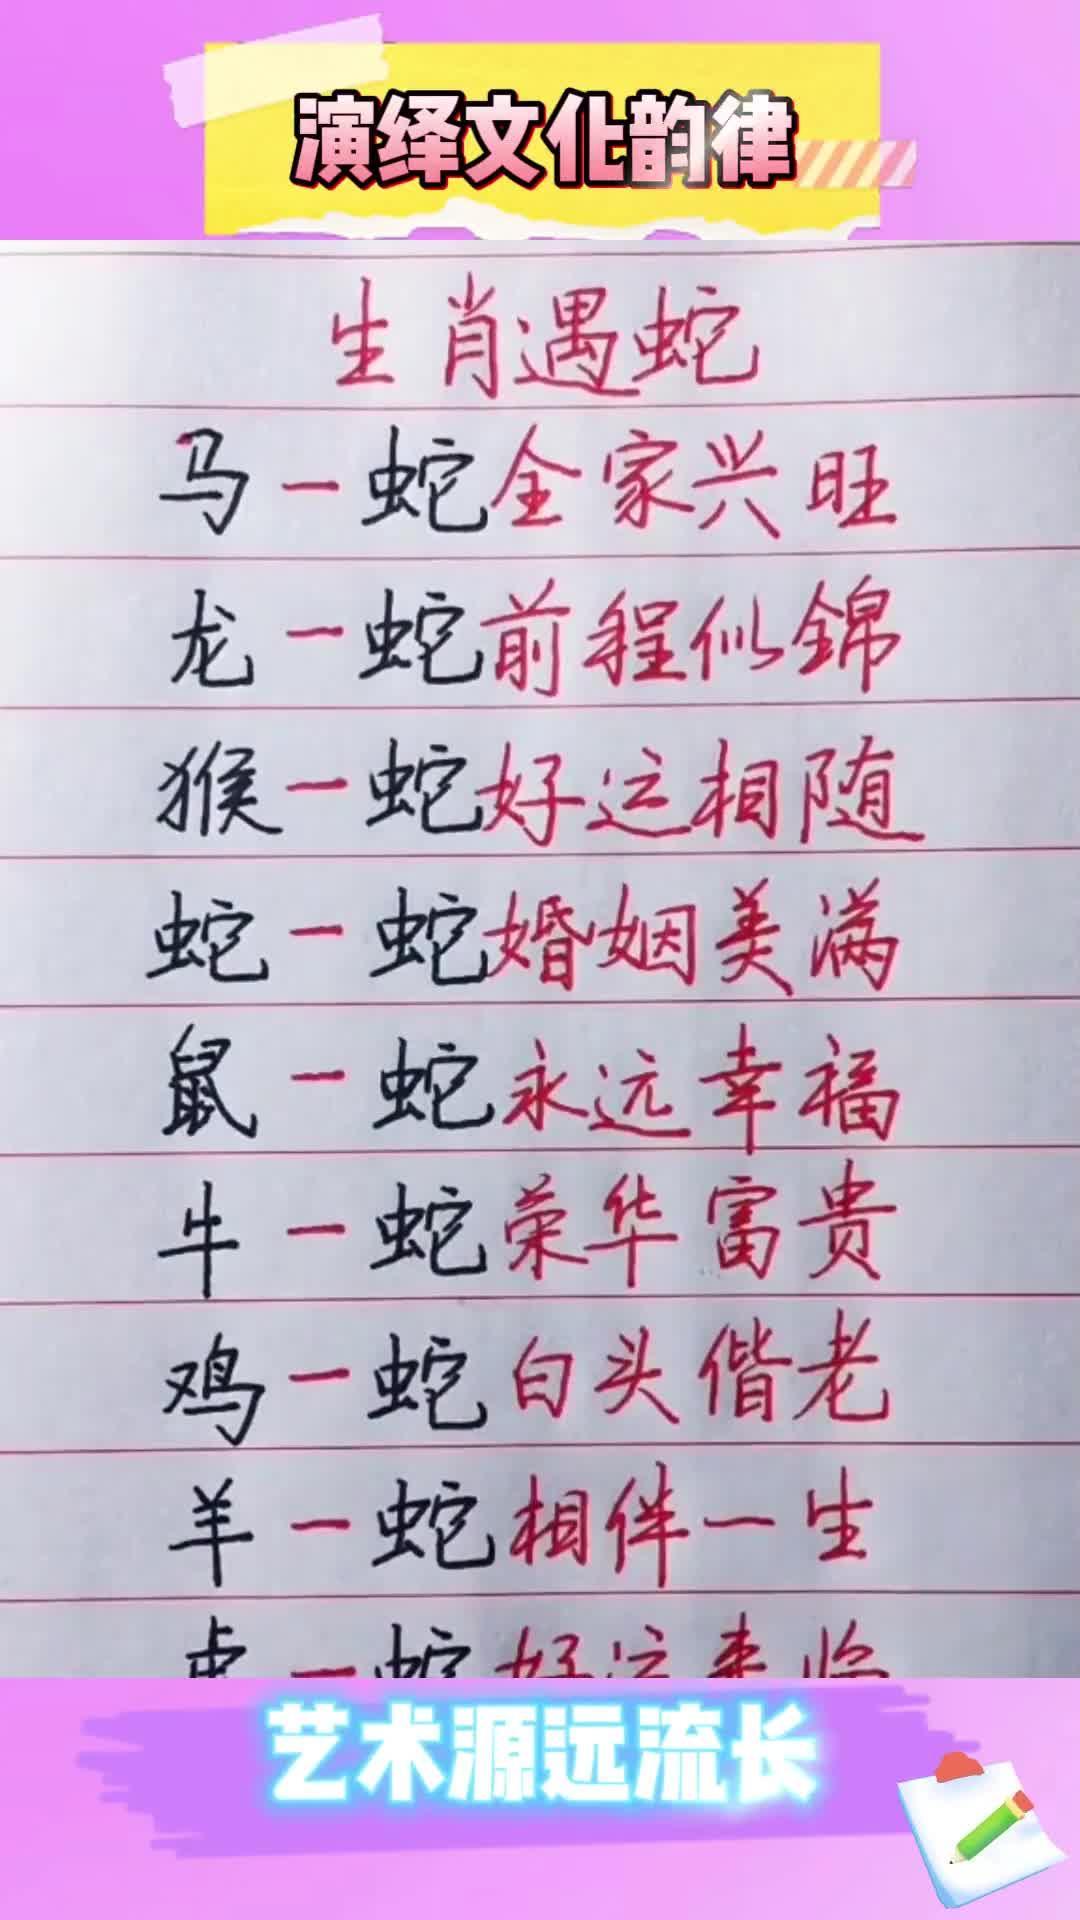 演绎文化韵律
生肖遇蛇
马一蛇全家兴旺
龙一蛇前程似錦
猴一蛇好运相随
蛇一蛇婚姻美满
鼠一蛇永远幸福
牛一蛇荣华富贵
鸡一蛇白头偕老
羊一蛇相伴一生
虎一蛇好运来临
艺术源远流长